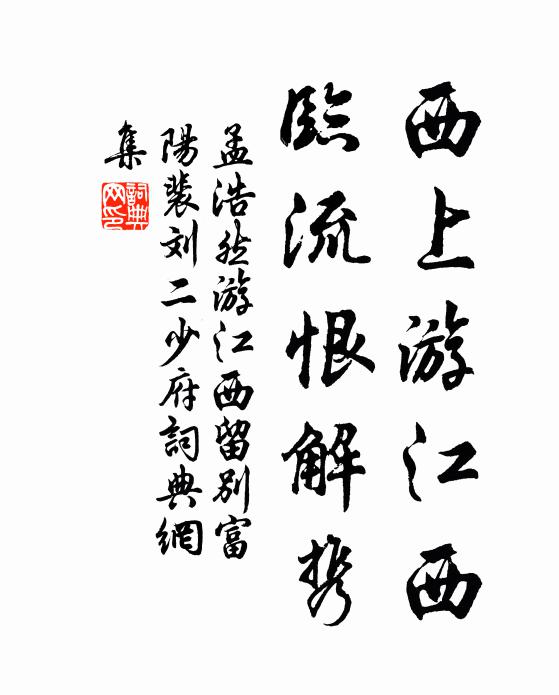 西上游江西
臨流恨解携
孟浩然游江西留別富
陽裴刘二少府詞典網
集
詞典
网印